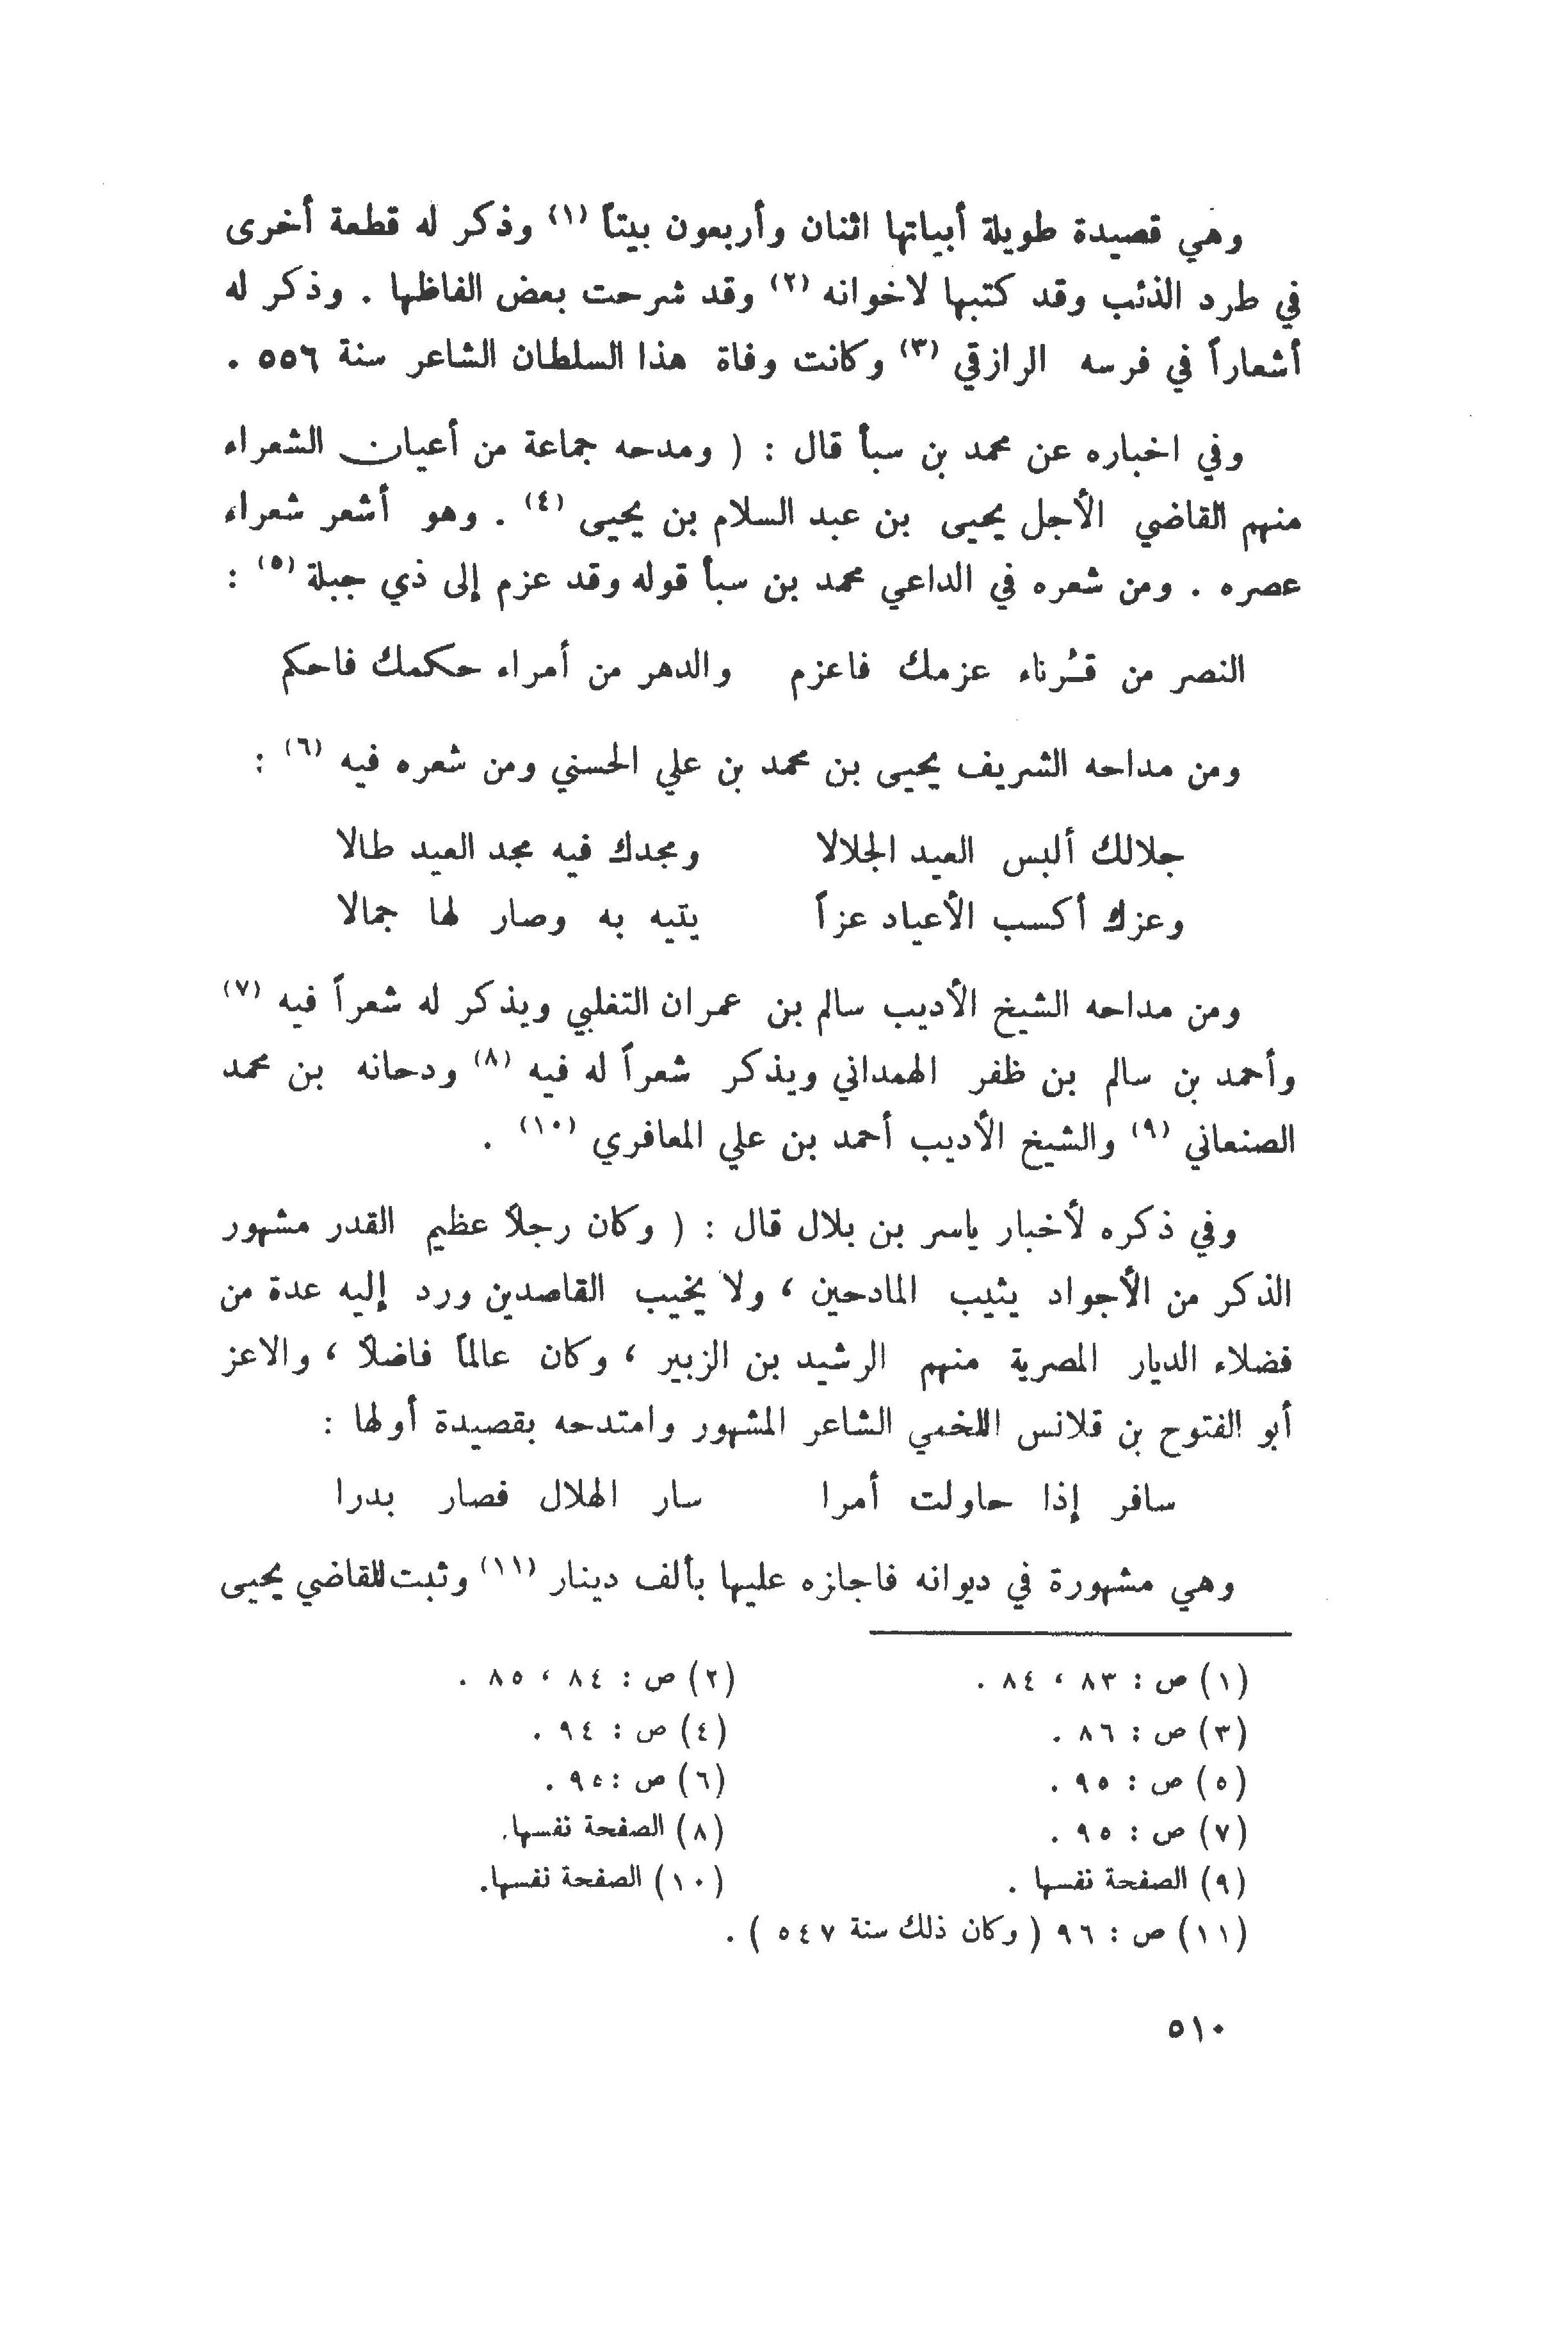 وهي قصيدة طويلة أبياتها اثنان وأربعون بيتاً (١) وذكر له قطعة أخرى
في طرد الذئب وقد كتبها لاخوانه (٢) وقد شرحت بعض الفاظها . وذكر له
أشعاراً في فرسه الرازقي (٣) وكانت وفاة هذا السلطان الشاعر سنة ٥٥٦ .
وفي اخباره عن محمد بن سبأ قال : ( ومدحه جماعة من أعيان الشعراء
منهم القاضي الأجل يحيى بن عبد السلام بن يحيى (٤) . وهو أشعر شعراء
عصره . ومن شعره في الداعي محمد بن سبأ قوله وقد عزم إلى ذي جبلة (٥) :
النصر من قُرناء عزمك فاعزم والدهر من أمراء حكمك فاحكم
ومن مداحه الشريف يحيى بن محمد بن علي الحسني ومن شعره فيه (٦) :
جلالك ألبس العيد الجلالا ومجدك فيه مجد العيد طالا
وعزك أكسب الأعياد عزاً يتيه به وصار لها جمالا
ومن مداحه الشيخ الأديب سالم بن عمران التغلبي ويذكر له شعراً فيه (٧)
وأحمد بن سالم بن ظفر الهمداني ويذكر شعراً له فيه (٨) ودحانه بن محمد
الصنعاني (٩) والشيخ الأديب أحمد بن علي المعافري (١٠) .
وفي ذكره لأخبار ياسر بن بلال قال : ( وكان رجلاً عظيم القدر مشهور
الذكر من الأجواد يثيب المادحين ، ولا يخيب القاصدين ورد إليه عدة من
فضلاء الديار المصرية منهم الرشيد بن الزبير ، وكان عالماً فاضلاً ، والاعز
أبو الفتوح بن قلانس اللخمي الشاعر المشهور وامتدحه بقصيدة أولها :
سافر إذا حاولت أمرا سار الهلال فصار بدرا
وهي مشهورة في ديوانه فاجازه عليها بألف دينار (١١) وثبت للقاضي يحيى
(١) ص : ٨٣ ، ٨٤ . (٢) ص : ٨٤ ، ٨٥ .
(٣) ص : ٨٦ . (٤) ص : ٩٤ .
(٥) ص : ٩٥ . (٦) ص : ٩٥ .
(٧) ص : ٩٥ . (٨) الصفحة نفسها.
(٩) الصفحة نفسها . (١٠) الصفحة نفسها.
(١١) ص : ٩٦ ( وكان ذلك سنة ٥٤٧ ) .
٥١٠